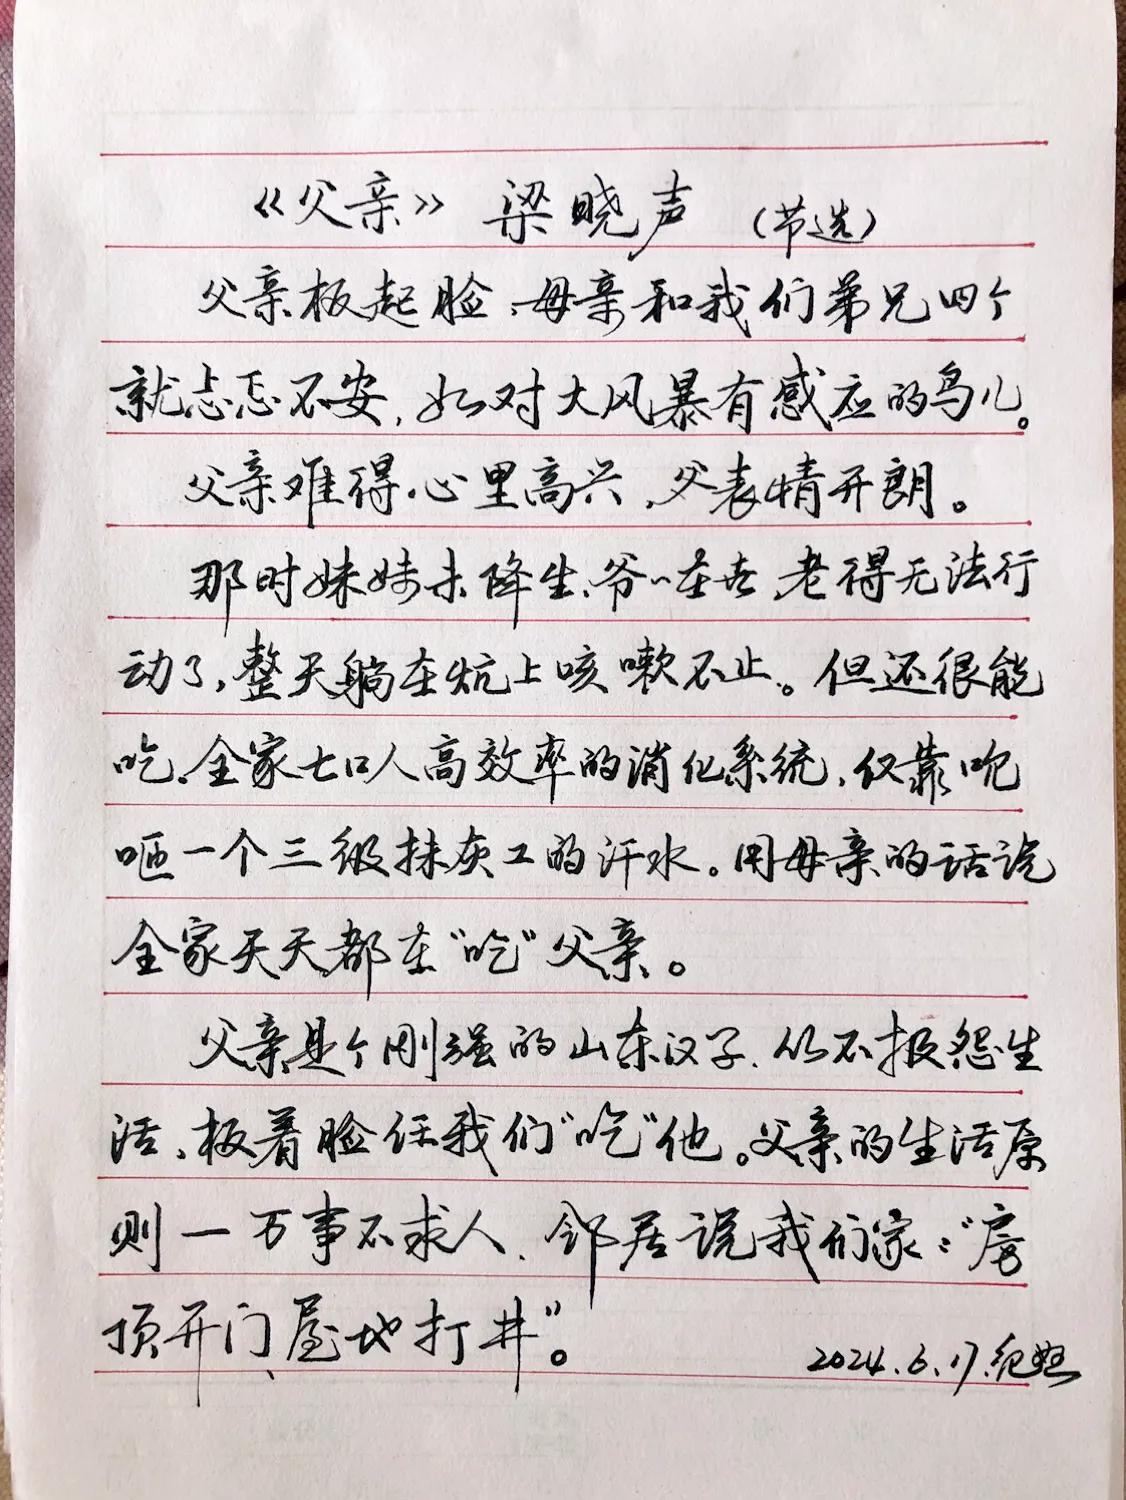 《父亲》 梁晓声 (节选)
父亲板起脸、母亲和我们弟兄四个
就忐忑不安,如对大风暴有感应的鸟儿。
父亲难得心里高兴,父表情开朗。
那时妹妹未降生、爷〻在世,老得无法行
动了,整天躺在炕上咳嗽不止。但还很能
吃、全家七口人高效率的消化系统,仅靠吮
咂一个三级抹灰工的汗水。用母亲的话说
全家天天都在"吃"父亲。
父亲是个刚强的山东汉子、从不抱怨生
活、板着脸任我们"吃"他。父亲的生活原
则一万事不求人、邻居说我们家:"房
顶开门、屋地打井"。
2024.6.17.